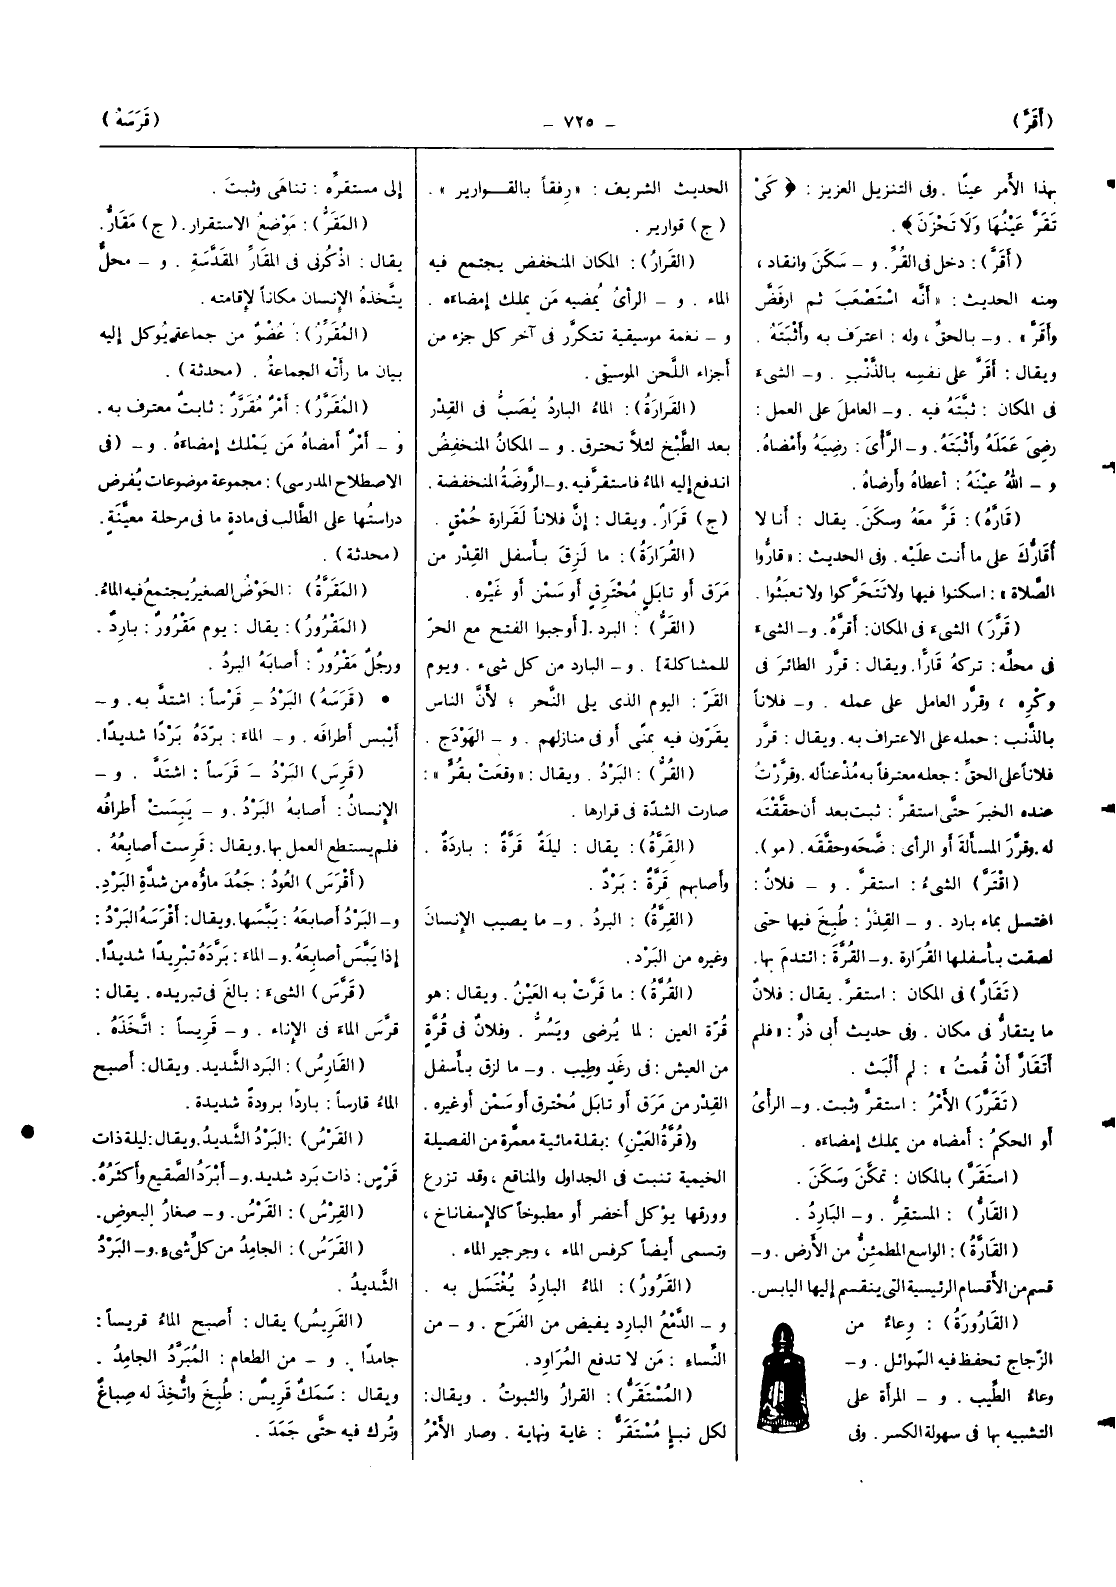 (أَقَرَّ)
– ٧٢٥ –
(قَرَسَهُ)
بهذا الأمر عينًا . وفى التنزيل العزيز : ﴿ كَىْ
تَقَرَّ عَيْنُهَا وَلَا تَحْزَنَ﴾ .
(أَقَرَّ) : دخل فى القُرِّ. و – سَكَنَ وانقاد ،
ومنه الحديث : «أَنَّه اسْتَصْعَبَ ثم ارفَضَّ
وأَقَرَّ » . و– بالحقِّ ، وله : اعترف به وأَثْبَتَهُ .
ويقال : أَقَرَّ على نفسِه بالذَّنْبِ . و– الشىءَ
فى المكان : ثَبَّتَهُ فيه . و– العاملَ على العمل :
رضِىَ عَمَلَهُ وأَثْبَتَهُ. و–الرَّأْىَ : رضِيَهُ وأَمْضاهُ.
و – اللهُ عيْنَهُ : أعطاهُ وأرضاهُ .
(قارَّهُ) : قَرَّ معَهُ وسكَنَ. يقال : أنا لا
أُقارُّكَ على ما أنت علَيْه . وفى الحديث : «قارُّوا
الصَّلاة» : اسكنوا فيها ولا تتَحَرَّكوا ولا تعبَثُوا .
(قَرَّرَ) الشىءَ فى المكان : أقرَّهُ. و–الشىءَ
فى محلِّه : تركهُ قَارًّا. ويقال : قرَّر الطائرَ فى
وكْرِه ، وقرَّر العامل على عمله . و– فلاناً
بالذَّنب : حمله على الاعتراف به. ويقال : قرَّر
فلاناً على الحقِّ : جعله معترفاً به مُذْعناً له. وقرَّرْتُ
عنده الخبرَ حتَّى استقرَّ : ثبت بعد أن حقَّقْتَه
له. وقرَّرَ المسألةَ أو الرأى : ضَّحَه وحقَّقَه . (مو).
(اقْتَرَّ) الشىءُ : استقرَّ . و – فلانٌ :
اغتسل بماء بارد . و – القِدْرَ : طُبِخَ فيها حتى
لصقت بأسفلها القُرَارة .و–القُرَّةَ : ائتدم بها.
(تَقَارَّ) فى المكان : استقرَّ. يقال : فلانٌ
ما يتقارُّ فى مكان . وفى حديث أبى ذرٍّ : «فلم
أتَقَارَّ أنْ قُمتُ » : لم ألْبَثْ .
(تَقَرَّرَ) الأمْرُ : استقرَّ وثبت. و– الرأىُ
أو الحكمُ : أمضاه من يملك إمضاءَه .
(استَقَرَّ) بالمكان : تمكَّنَ وسَكَنَ .
(القَارُّ) : المستقِرُّ . و– البَارِدُ .
(القَارَّةُ) : الواسع المطمئِنُّ من الأرض . و–
قسم من الأقسام الرئيسية التى ينقسم إليها اليابس.
(القَارُورَةُ) : وِعاءٌ من
الزّجاج تحفظ فيه السَّوائل . و–
وعاءُ الطِّيب . و – المرأة على
التشبيه بها فى سهولة الكسر . وفى
الحديث الشريف : «رِفقاً بالقوارير» .
(ج) قوارير .
(القَرارُ) : المكان المنخفض يجتمع فيه
الماء . و – الرأىُ يُمضيه مَن يملك إمضاءَه .
و – نغمة موسيقية تتكرَّر فى آخر كل جزء من
أجزاء اللَّحن الموسيقى .
(القَرَارَةُ) : الماءُ الباردُ يُصَبُّ فى القِدْر
بعد الطَّبْخ لئلاَّ تحترق. و – المكانُ المنخفِضُ
اندفع إليه الماءُ فاستقرَّ فيه .و–الروضَةُ المنخفضة .
(ج) قَرَارٌ . ويقال : إنَّ فلاناً لَقَرارة حُمْقٍ .
(القُرَارَةُ) : ما لَزِقَ بأسفل القِدْر من
مَرَق أو تابَلٍ مُحْترِقٍ أو سَمْن أو غيْره .
(القَرُّ) : البرد .[أوجبوا الفتح مع الحرّ
للمشاكلة] . و– البارد من كل شىء . ويوم
القَرّ : اليوم الذى يلى النَّحر ؛ لأنَّ الناس
يقَرّون فيه بمنًى أو فى منازلهم . و – الهَوْدَج .
(القُرُّ) : البَرْدُ . ويقال : «وقعَتْ بقُرٍّ » :
صارت الشدّة فى قرارها .
(القَرَّةُ) : يقال : ليلَةٌ قَرَّةٌ : باردَةٌ .
وأصابهم قَرَّةٌ : بَرْدٌ .
(القِرَّةُ) : البردُ . و– ما يصيب الإنسانَ
وغيره من البَرْد .
(القُرَّةُ) : ما قرَّتْ به العَيْنُ . ويقال : هو
قُرّة العين : لما يُرضى ويَسُرُّ . وفلانٌ فى قُرَّةٍ
من العيش : فى رغَدٍ وطِيب . و– ما لزق بأسفل
القِدْر من مَرَق أو تابَل مُحْترق أو سَمْن أو غيره .
و(قُرَّةُ العَيْنِ) : بقلة مائية معمَّرة من الفصيلة
الخيمية تنبت فى الجداول والمناقع ، وقد تزرع
وورقها يؤكل أخضر أو مطبوخاً كالإسفاناخ ،
وتسمى أيضاً كرفس الماء ، وجرجير الماء .
(القَرُورُ) : الماءُ البارِدُ يُغْتَسَل به .
و – الدَّمْعُ البارِد يفيض من الفَرَح . و – من
النِّساء : مَن لا تدفع المُرَاوِد .
(المُسْتَقَرُّ) : القرارُ والثبوتُ . ويقال :
لكل نبإ مُسْتَقَرٌّ : غاية ونهاية . وصار الأَمْرُ
إلى مستقرِّه : تناهَى وثبتَ .
(المَقَرُّ) : مَوْضعُ الاستقرار. (ج) مَقَارُّ.
يقال : اذْكُرنى فى المَقَارِّ المقَدَّسَة . و – محلٌّ
يتَّخذهُ الإنسان مكاناً لإقامته .
(المُقَرِّرُ) : عُضْوٌ من جماعة يُوكل إليه
بيان ما رأَته الجماعةُ . (محدثة) .
(المُقَرَّرُ) : أَمْرٌ مُقَرَّرٌ : ثابتٌ معترف به.
و – أَمْرٌ أمضاهُ مَن يَمْلك إمضاءَهُ . و – (فى
الاصطلاح المدرسى) : مجموعة موضوعات يُفرض
دراستُها على الطَّالب فى مادةٍ ما فى مرحلة معيَّنَةٍ.
(محدثة) .
(المَقَرَّةُ) : الحَوْضُ الصغيرُ يجتمعُ فيه الماءُ.
(المَقْرُورُ) : يقال : يوم مَقْرُورٌ : بارِدٌ .
ورجُلٌ مَقْرُورٌ : أصابَهُ البردُ .
• (قَرَسَهُ) البَرْدُ ِ– قَرْساً : اشتدَّ به. و–
أيْبس أطرافَه . و – الماءَ : برّدَهُ بَرْدًا شديدًا.
(قَرِسَ) البَرْدُ َ– قَرَساً : اشتَدَّ . و –
الإنسانُ : أصابهُ البَرْدُ.و – يَبِسَتْ أطرافُه
فلم يستطع العمل بها. ويقال : قَرِست أصابِعُهُ .
(أقْرَسَ) العُودُ : جَمُدَ ماؤُه من شدَّةِ البَرْدِ.
و–البَرْدُ أصابعَهُ : يَبَّسَها. ويقال: أقْرَسَهُ البَرْدُ :
إذا يَبَّسَ أصابِعَهُ. و– الماءَ : بَرَّدَهُ تبْريدًا شديدًا.
(قَرَّسَ) الشىءَ : بالغَ فى تبريده . يقال :
قرَّسَ الماءَ فى الإناء . و – قَرِيساً : اتَّخَذَهُ .
(القَارِسُ) : البَرد الشَّديد. ويقال : أصبح
الماءُ قارِساً : بارِدًا برودةً شديدة .
(القَرْسُ) : البَرْدُ الشَّديدُ.ويقال : ليلة ذات
قَرْسٍ : ذات بَرد شديد. و– أبْرَدُ الصَّقيع وأكثَرُهُ.
(القِرْسُ) : القَرْسُ. و– صغارُ البعوضِ.
(القَرَسُ) : الجامِدُ من كلِّ شىءٍ .و– البَرْدُ
الشَّديدُ .
(القَرِيسُ) يقال : أصبح الماءُ قريساً :
جامدًا . و – من الطعام : المُبَرَّدُ الجامِدُ .
ويقال : سَمَكٌ قَرِيسٌ : طُبِخَ واتُّخِذَ له صِباغٌ
وتُرك فيه حتَّى جَمَدَ .